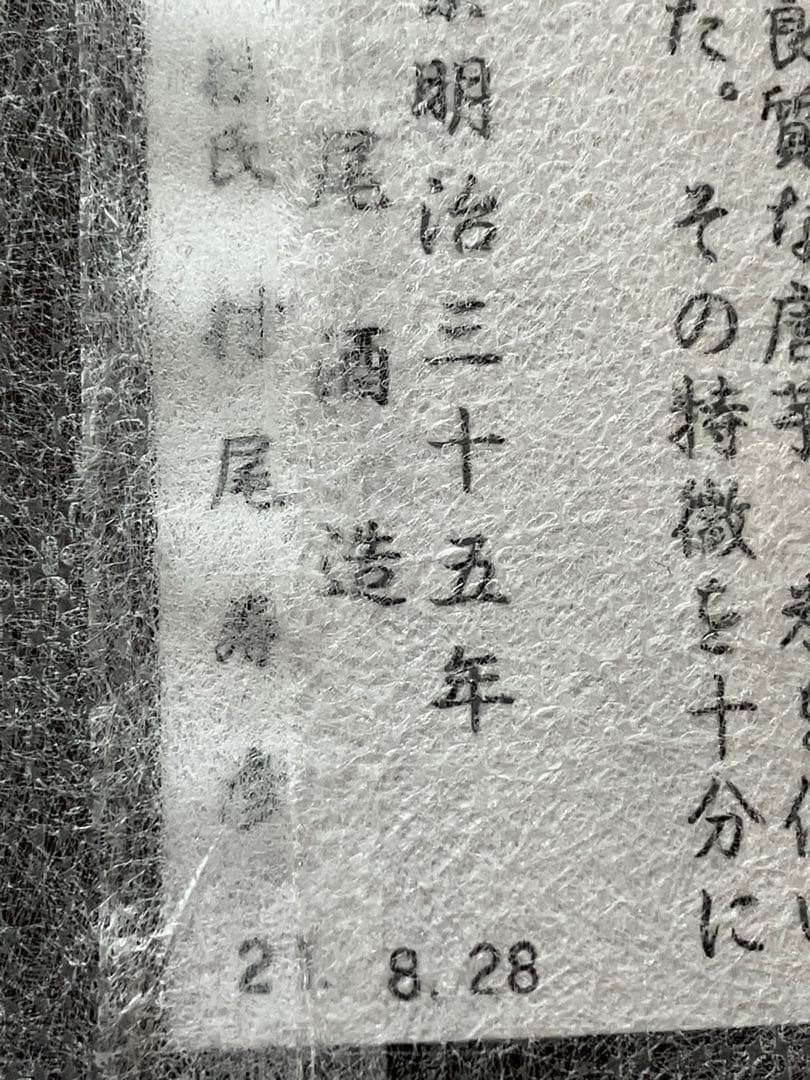 良質な唐芋
た。その特徴を十分に
明治三十五年
尾酒造
氏 村尾寿彦
21. 8. 28